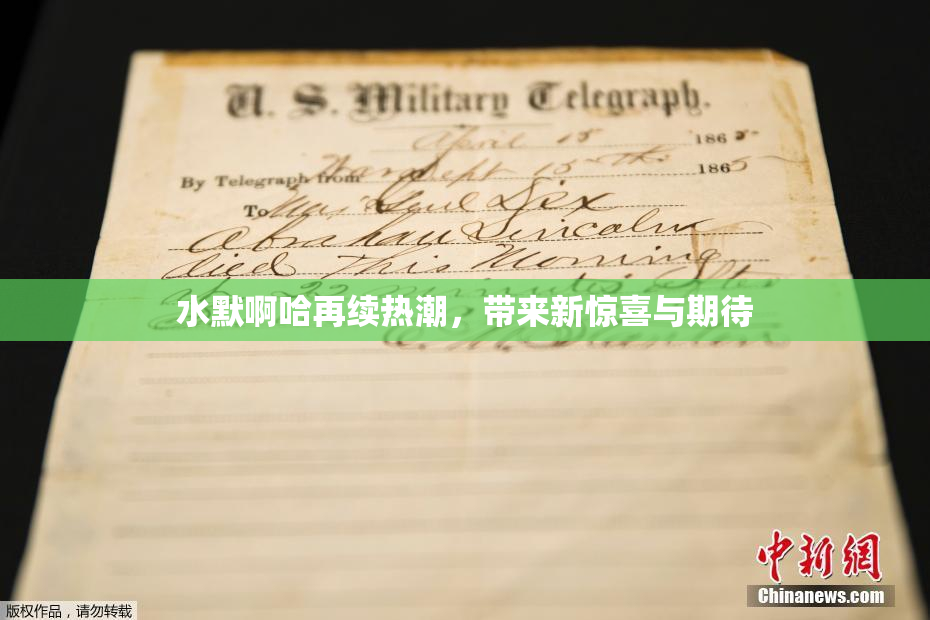 U. S. Military Telegraph.
April 15 1865
By Telegraph from War Dept 15th 1865
To Maj Genl Dix
Abraham Lincoln
died This Morning
22 minutes after
水默啊哈再续热潮，带来新惊喜与期待
E. M. Stanton
中新网
Chinanews.com
版权作品，请勿转载